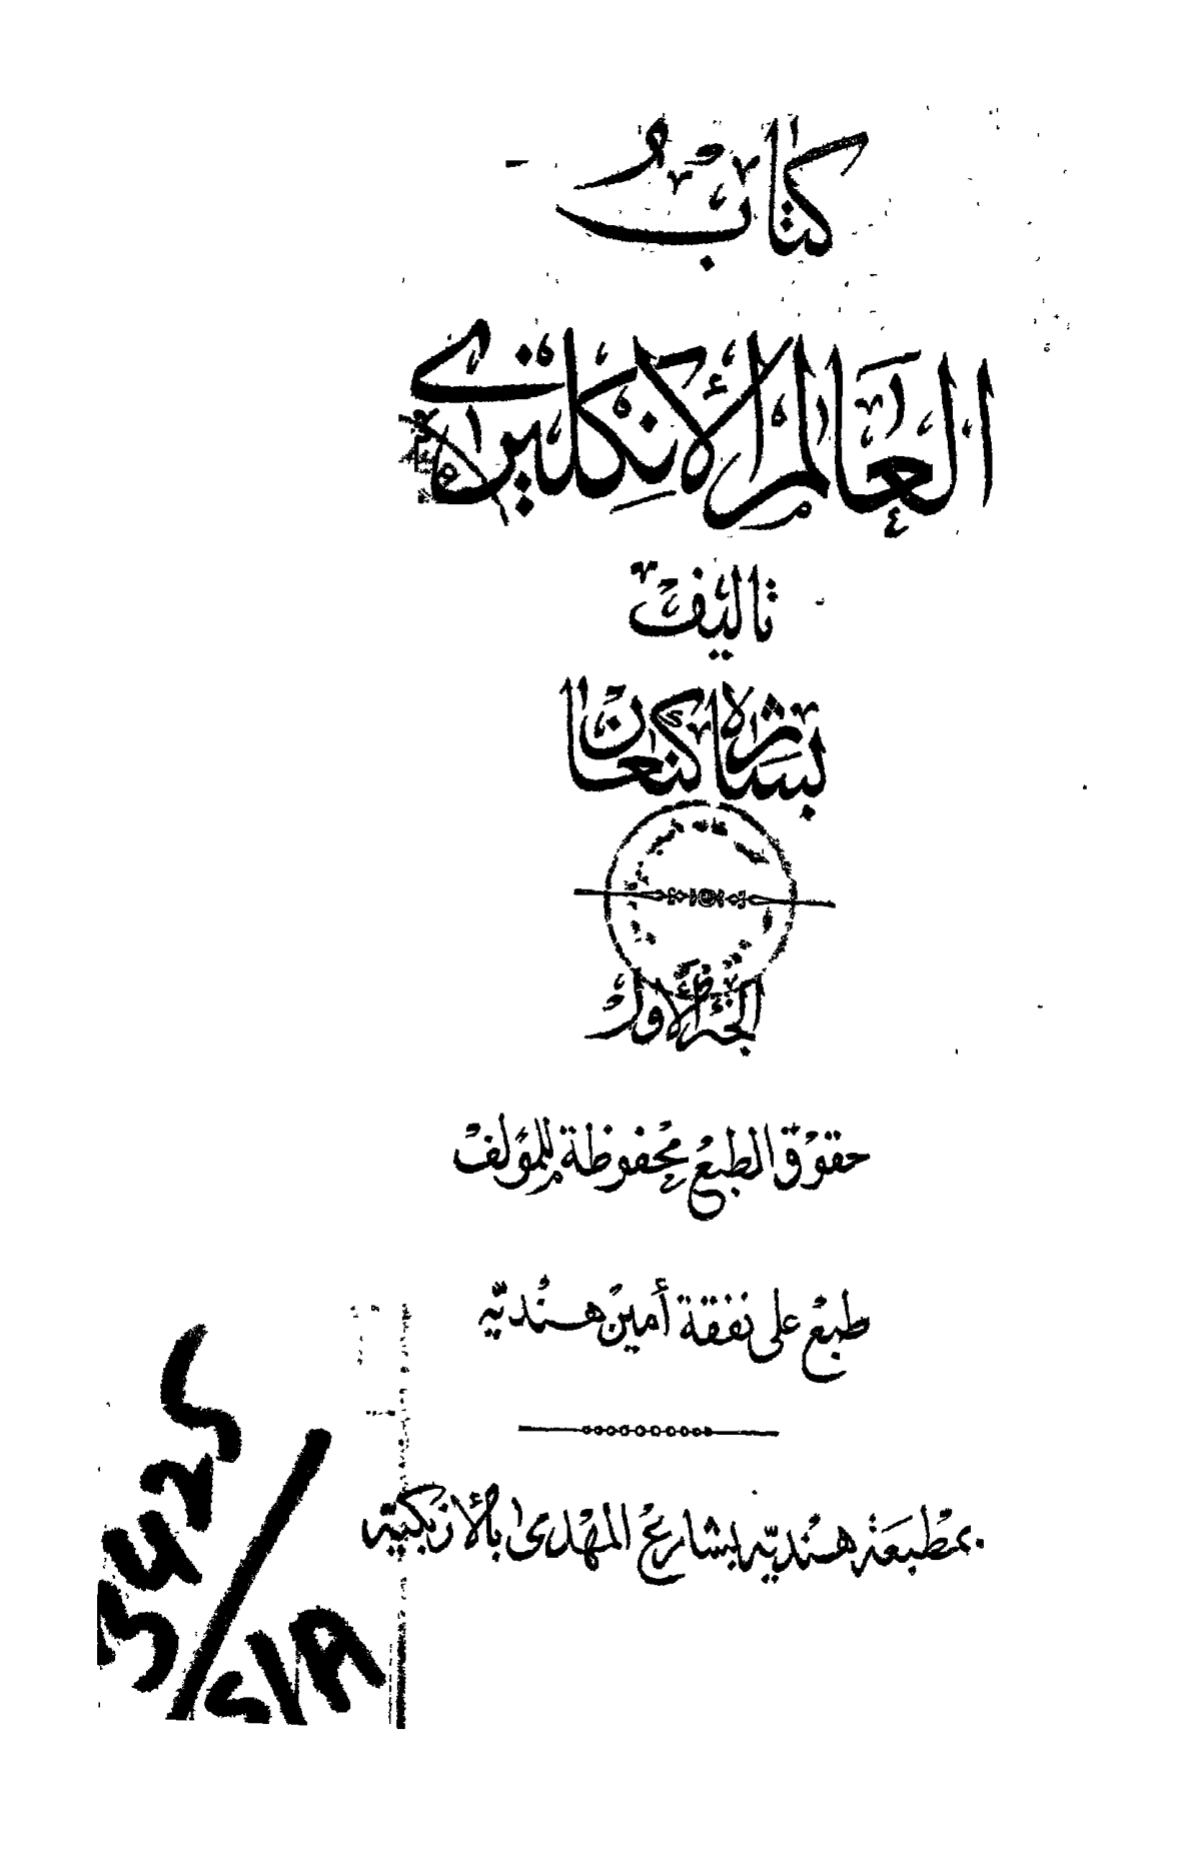 كتاب
العالم الأنكليزي
تاليف
بشاره كنعان
الجزء الأول
حقوق الطبع محفوظة للمؤلف
طبع على نفقة أمين هنديّه
بمطبعة هنديّه بشارع المهدى بالأزبكيّه